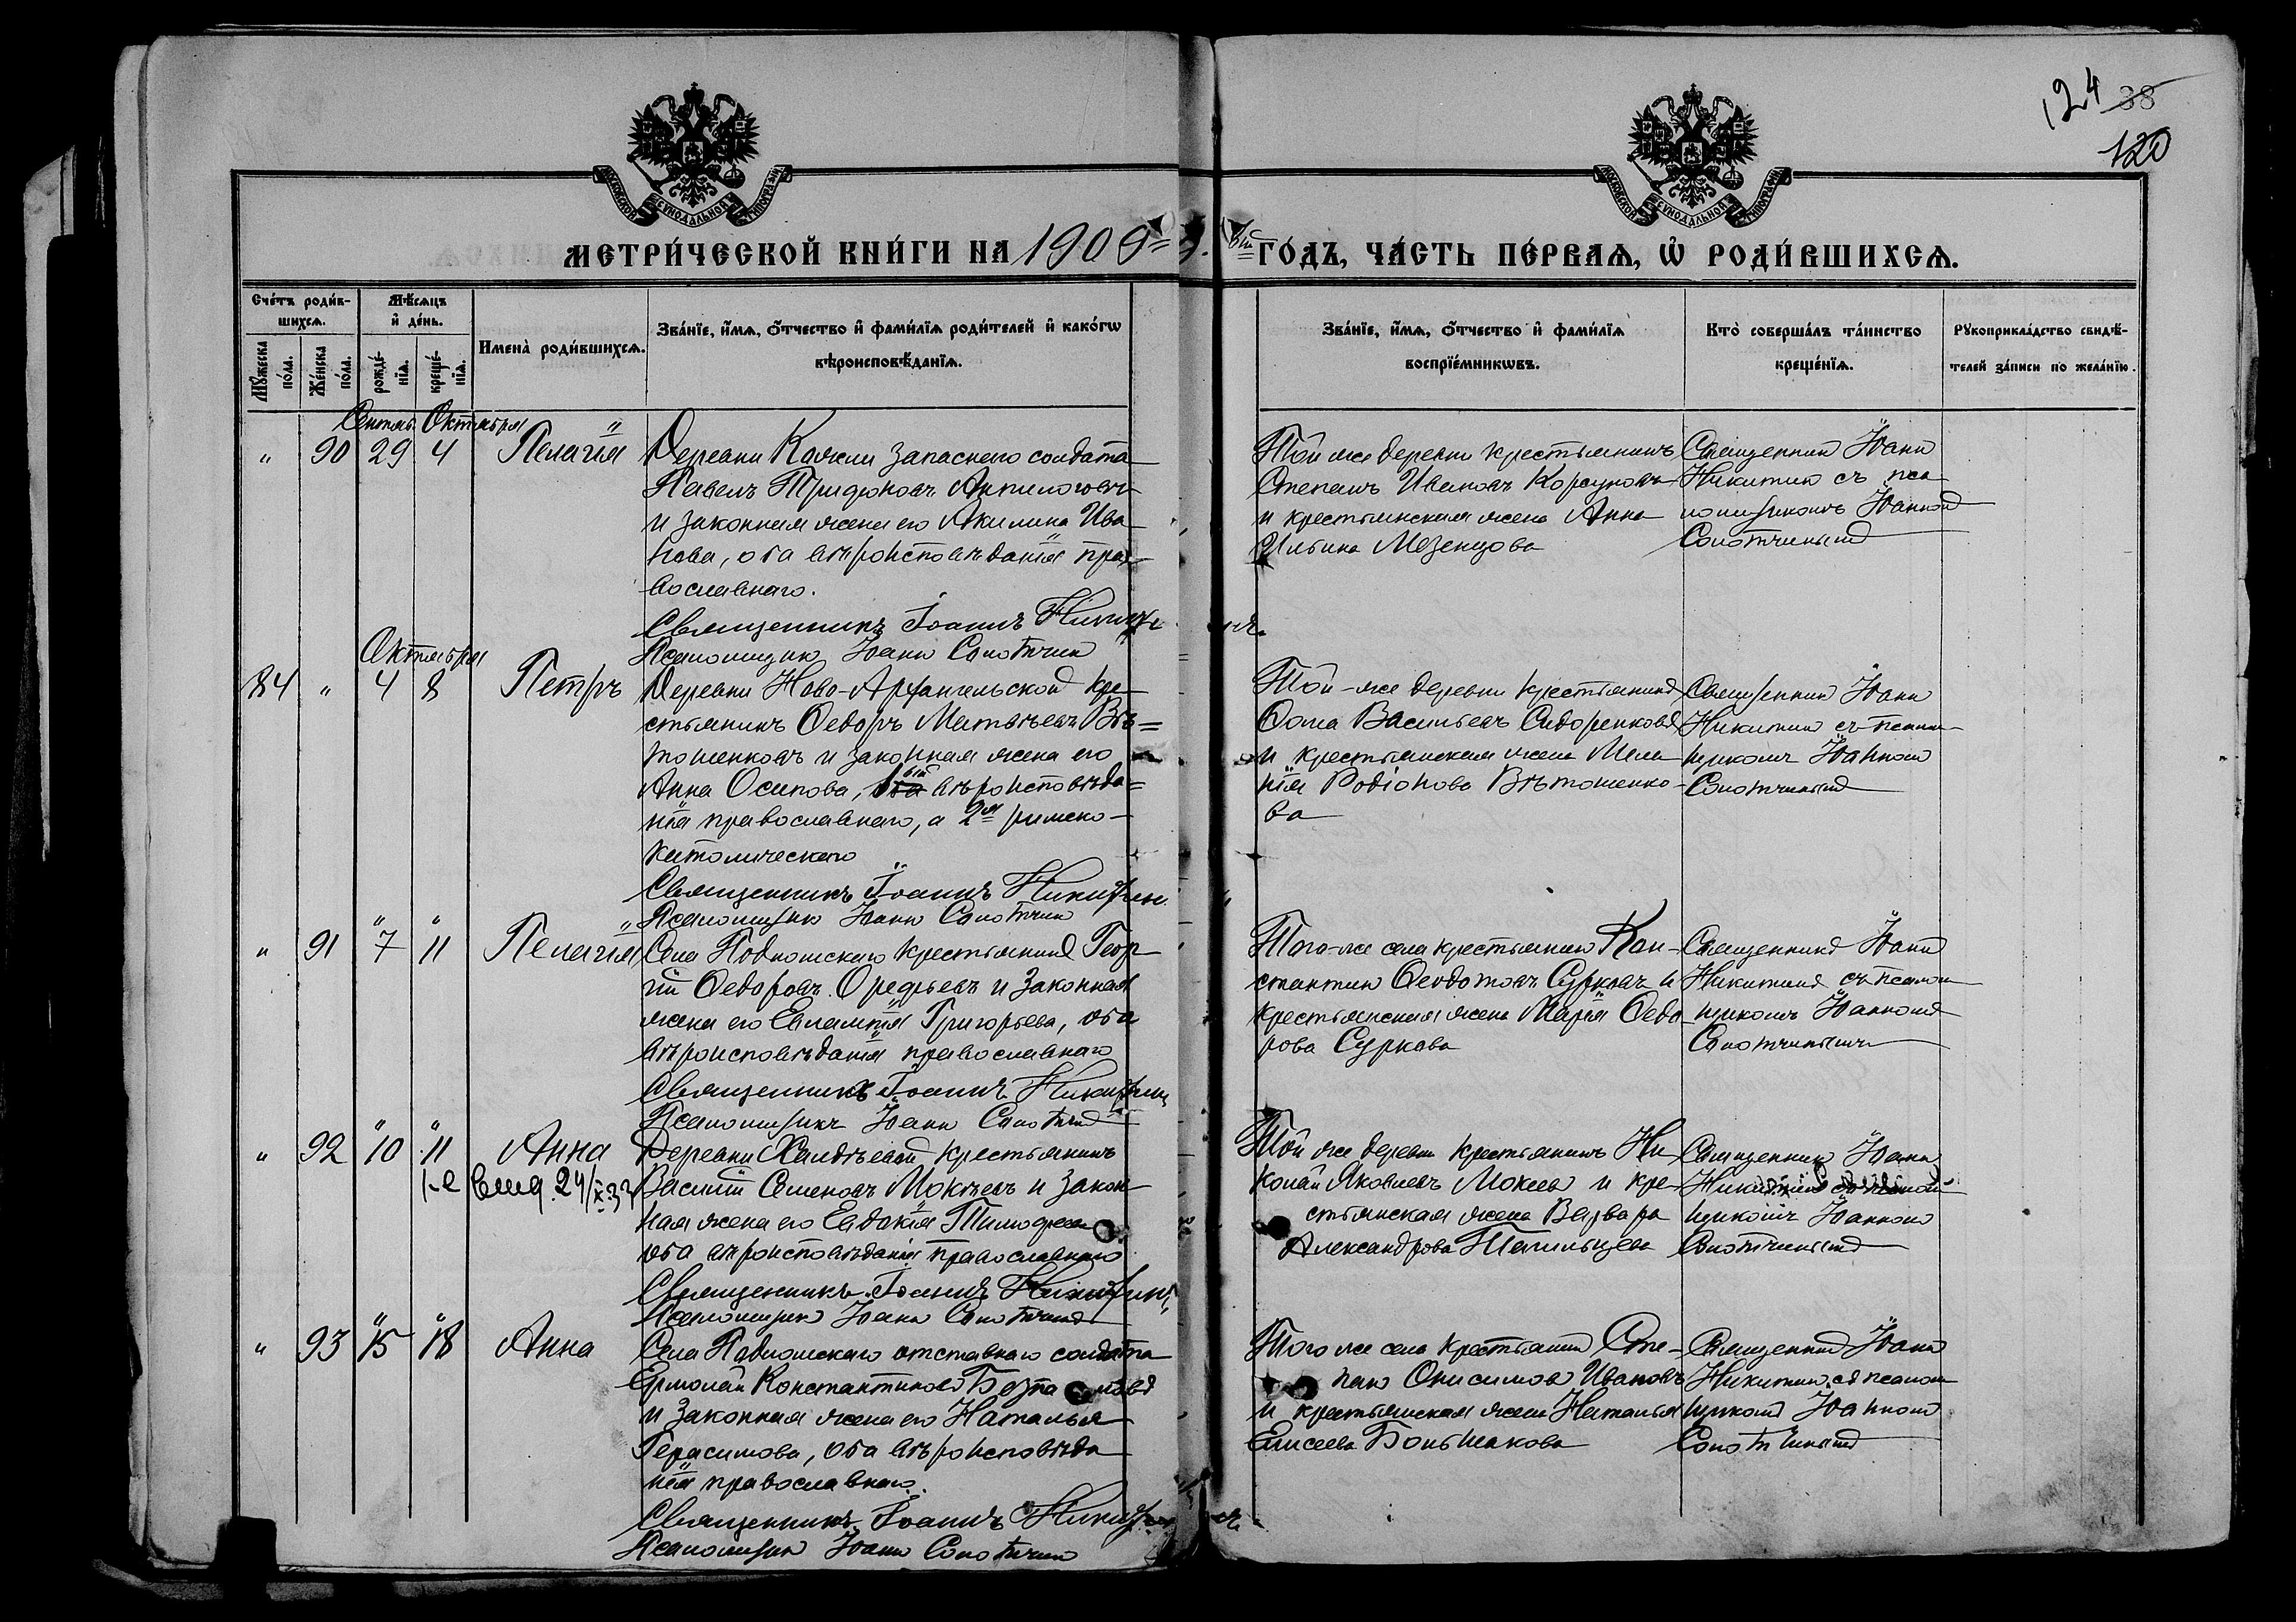 124 38
120
МОСКОВСКОЙ СѴНОДАЛЬНОЙ ТИПОГРАФІИ
МОСКОВСКОЙ СѴНОДАЛЬНОЙ ТИПОГРАФІИ
МЕТРИ́ЧЕСКОЙ КНИ́ГИ НА 190
ГО́ДЪ, ЧА́СТЬ ПЕ́РВАЯ, Ѡ҆ РОДИ́ВШИХСЯ.
Сче́тъ роди́в-
шихся.
Мѣ́сяцъ
и҆ де́нь.
Мꙋ́жеска по́ла.
Же́нска по́ла.
рожде́-нїя.
креще́-нїя.
Имена̀ роди́вшихся.
Зва́нїе, и҆́мя, ѻ҆́тчество и҆ фами́лїя роди́телей и҆ како́гѡ
вѣроисповѣ́данїя.
Зва́нїе, и҆́мя, ѻ҆́тчество и҆ фами́лїя
воспрїе́мникѡвъ.
Кто̀ соверша́лъ та́инство
креще́нїя.
Рꙋкоприкла́дство свидѣ́-
телей за́писи по жела́нїю.
Сентяб. Октября
" 90 29 4 Пелагія
Деревни запаснаго солдата
Павелъ
и законная жена его Акилина Ива
нова, оба вѣроисповѣданія пра-
вославнаго.
Священникъ Іоаннъ Никитинъ.
Псаломщик Іоанн
Той же деревни крестьянинъ
Степанъ Ивановъ Корсуновъ
и крестьянская жена Анна
Ильина Мезенцова
Священник Іоанн
Никитин съ пса
ломщикомъ Іоанном
Октября
84 " 4 8 Петръ
Деревни Ново-Архангельской кре-
стьянинъ Ѳедоръ Матвѣевъ Вѣ=
тошенковъ и законная жена его
Анна Осипова, 1ый вѣроисповѣда=
нія православнаго, а 2я римско-
католическаго
Священникъ Іоаннъ Никитин.
Псаломщик Іоанн
Той-же деревни крестьянинъ
Ѳома Васильевъ Сидоренковъ
и крестьянская жена Мела
нія Родіонова Вѣтошенко-
ва
Священник Іоанн
Никитин съ псалом
щикомъ Іоанном
" 91 7 11 Пелагія
Села Подломскаго крестьянинъ Геор-
гій Ѳедоровъ Орефьевъ и законная
жена его Евлампія Григорьева, оба
вѣроисповѣданія православнаго
Священникъ Іоаннъ Никитин
Псаломщикъ Іоанн
Того-же села крестьянин Кон-
стантин Ѳеодотовъ Сурковъ и
крестьянская жена Марія Ѳедо-
рова Суркова
Священникъ Іоанн
Никитинъ съ псалом
щикомъ Іоанномъ
" 92 10 11 Анна
Деревни крестьянинъ
Василій Семеновъ Мокѣевъ и закон
ная жена его Евдокія Тимофеева
оба вѣроисповѣданія православнаго
Священникъ Іоаннъ Никитинъ
Псаломщик Іоанн
Той же деревни крестьянинъ Ни
колай Яковлевъ Мокеев и кре-
стьянская жена Варвара
Александрова
Священник Іоанн
Никитин съ псалом
щикомъ Іоанном
" 93 15 18 Анна
Села Подломскаго отставнаго солдата
Ермолай Константиновъ
и законная жена его Наталья
Герасимова, оба вѣроисповѣда
нія православнаго.
Священникъ Іоаннъ Никитинъ.
Псаломщик Іоанн
Того же села крестьянин Сте-
пан Онисимов Ивановъ
и крестьянская жена Наталья
Елисеева Большакова
Священник Іоанн
Никитин съ псалом
щиком Іоанном